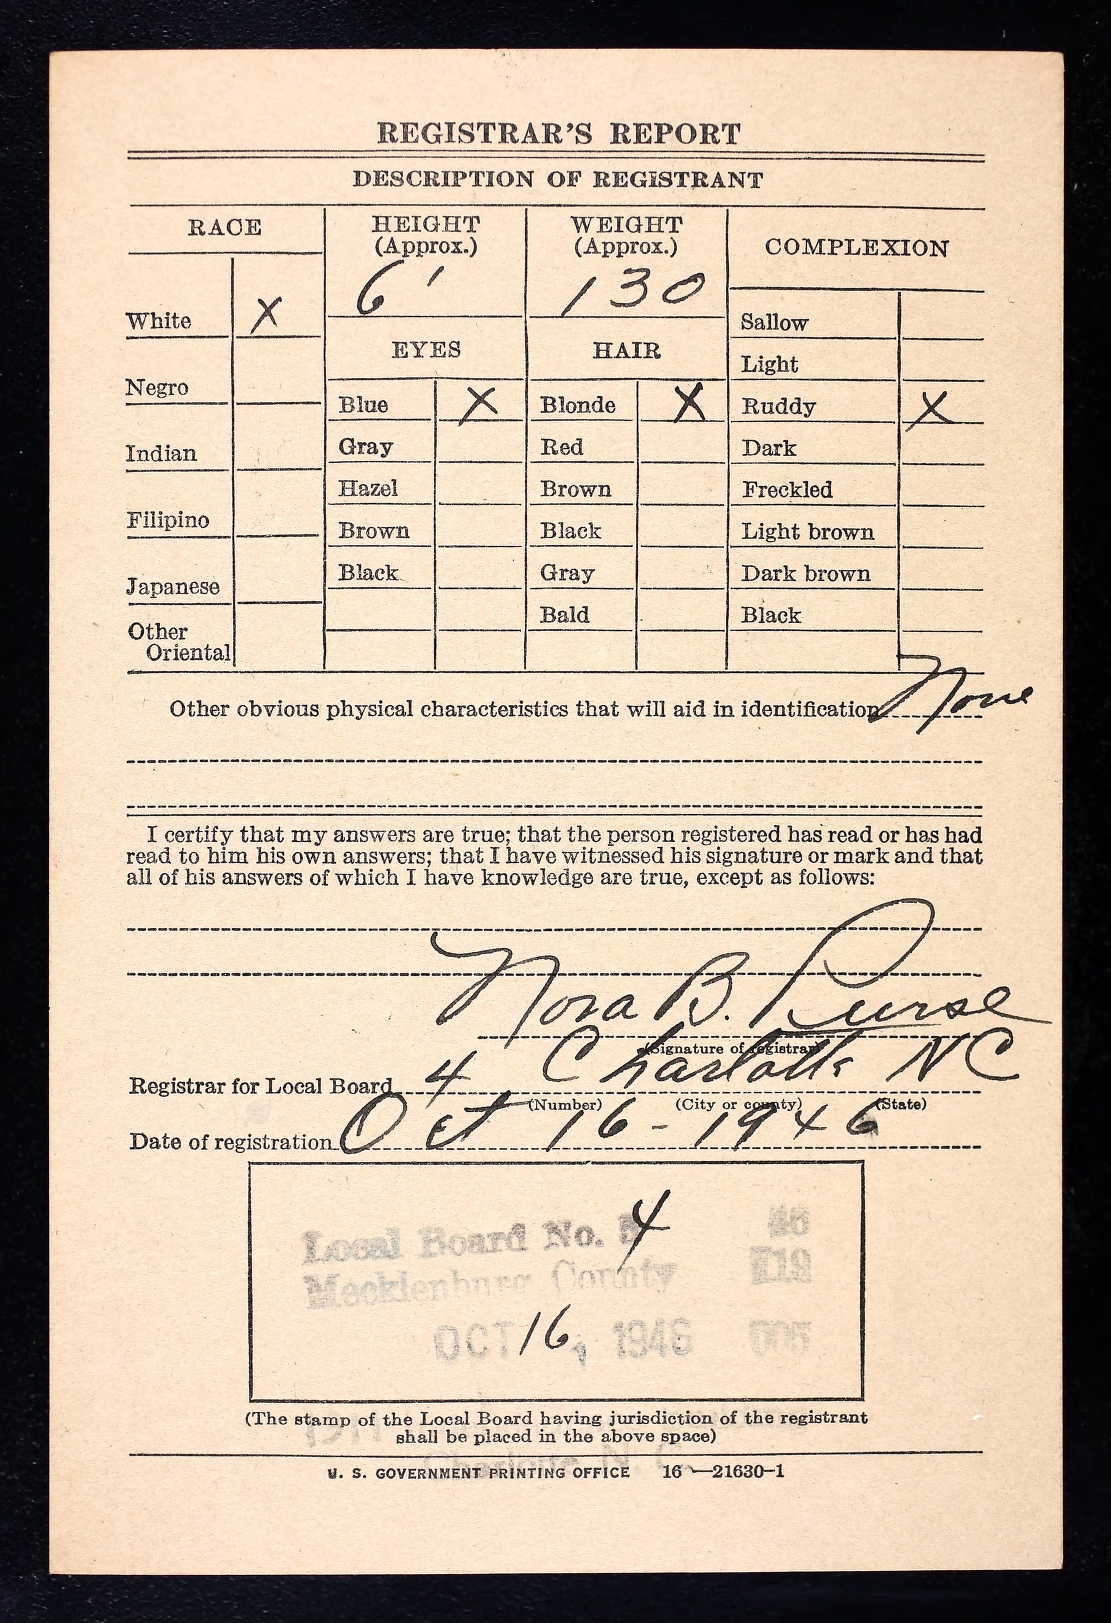 REGISTRAR'S REPORT
DESCRIPTION OF REGISTRANT
RACE
HEIGHT
(Approx.)
WEIGHT
(Approx.)
COMPLEXION
6'
130
White X
Negro
Indian
Filipino
Japanese
Other
Oriental
EYES
Blue X
Gray
Hazel
Brown
Black
HAIR
Blonde X
Red
Brown
Black
Gray
Bald
Sallow
Light
Ruddy X
Dark
Freckled
Light brown
Dark brown
Black
Other obvious physical characteristics that will aid in identification None
I certify that my answers are true; that the person registered has read or has had
read to him his own answers; that I have witnessed his signature or mark and that
all of his answers of which I have knowledge are true, except as follows:
Nora B. Purse
(Signature of registrar)
Registrar for Local Board 4 Charlotte NC
(Number) (City or county) (State)
Date of registration Oct 16 - 1946
Local Board No. 4 46
Mecklenburg County 119
OCT 16, 1946 005
(The stamp of the Local Board having jurisdiction of the registrant
shall be placed in the above space)
Charlotte N. C.
U. S. GOVERNMENT PRINTING OFFICE 16—21630-1